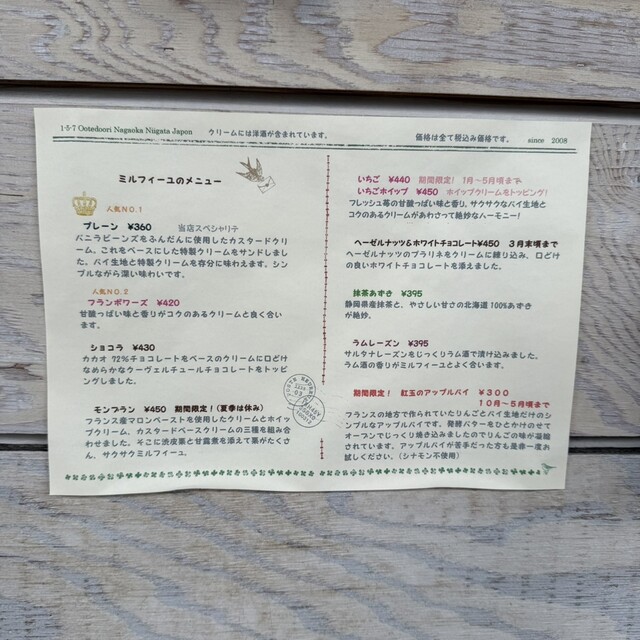 1-5-7 Ootedoori Nagaoka Niigata Japon クリームには洋酒が含まれています。 価格は全て税込み価格です。 since 2008
ミルフィーユのメニュー
人気NO.1
プレーン ¥360 当店スペシャリテ
バニラビーンズをふんだんに使用したカスタードクリ
ーム、これをベースにした特製クリームをサンドしまし
た。パイ生地と特製クリームを存分に味わえます。シン
プルながら深い味わいです。
人気NO.2
フランボワーズ ¥420
甘酸っぱい味と香りがコクのあるクリームと良く合い
ます。
ショコラ ¥430
カカオ 72%チョコレートをベースのクリームに口どけ
なめらかなクーヴェルチュールチョコレートをトッピ
ングしました。
モンブラン ¥450 期間限定!(夏季は休み)
フランス産マロンペーストを使用したクリームとホイッ
プクリーム、カスタードベースクリームの三種を組み合
わせました。そこに渋皮栗と甘露煮を添えて栗がたくさ
ん、サクサクミルフィーユ。
いちご ¥440 期間限定! 1月~5月頃まで
いちごホイップ ¥450 ホイップクリームをトッピング!
フレッシュ苺の甘酸っぱい味と香り、サクサクなパイ生地と
コクのあるクリームがあわさって絶妙なハーモニー!
ヘーゼルナッツ&ホワイトチョコレート¥450 3月末頃まで
ヘーゼルナッツのプラリネをクリームに練り込み、口どけ
の良いホワイトチョコレートを添えました。
抹茶あずき ¥395
静岡県産抹茶と、やさしい甘さの北海道100%あずき
が絶妙。
ラムレーズン ¥395
サルタナレーズンをじっくりラム酒で漬け込みました。
ラム酒の香りがミルフィーユとよく合います。
期間限定! 紅玉のアップルパイ ¥300
10月~5月頃まで
フランスの地方で作られていたりんごとパイ生地だけのシ
ンプルなアップルパイです。発酵バターをひとかけのせて
オーブンでじっくり焼き込みましたのでりんごの味が凝縮
されています。アップルパイが苦手だった方も是非一度お
試しください。(シナモン不使用)